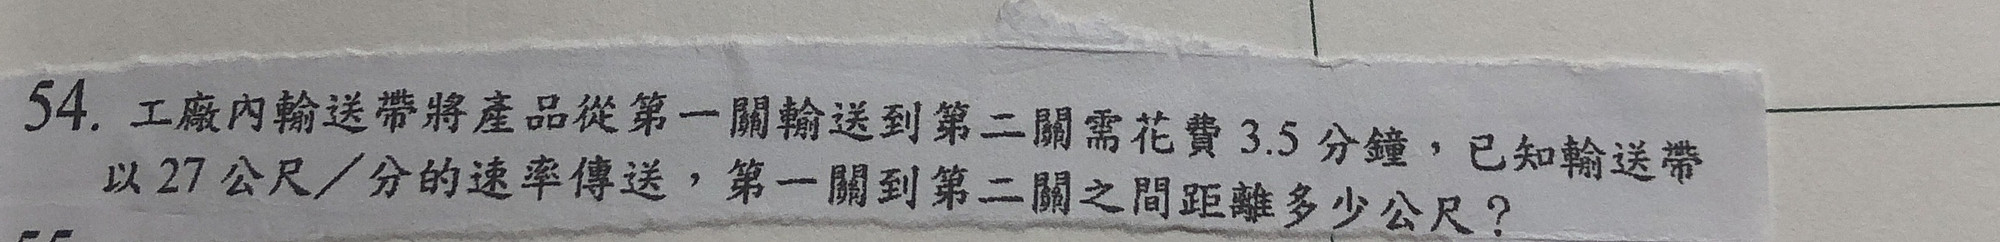 54. 工廠內輸送帶將產品從第一關輸送到第二關需花費 3.5 分鐘，已知輸送帶
以 27 公尺／分的速率傳送，第一關到第二關之間距離多少公尺？